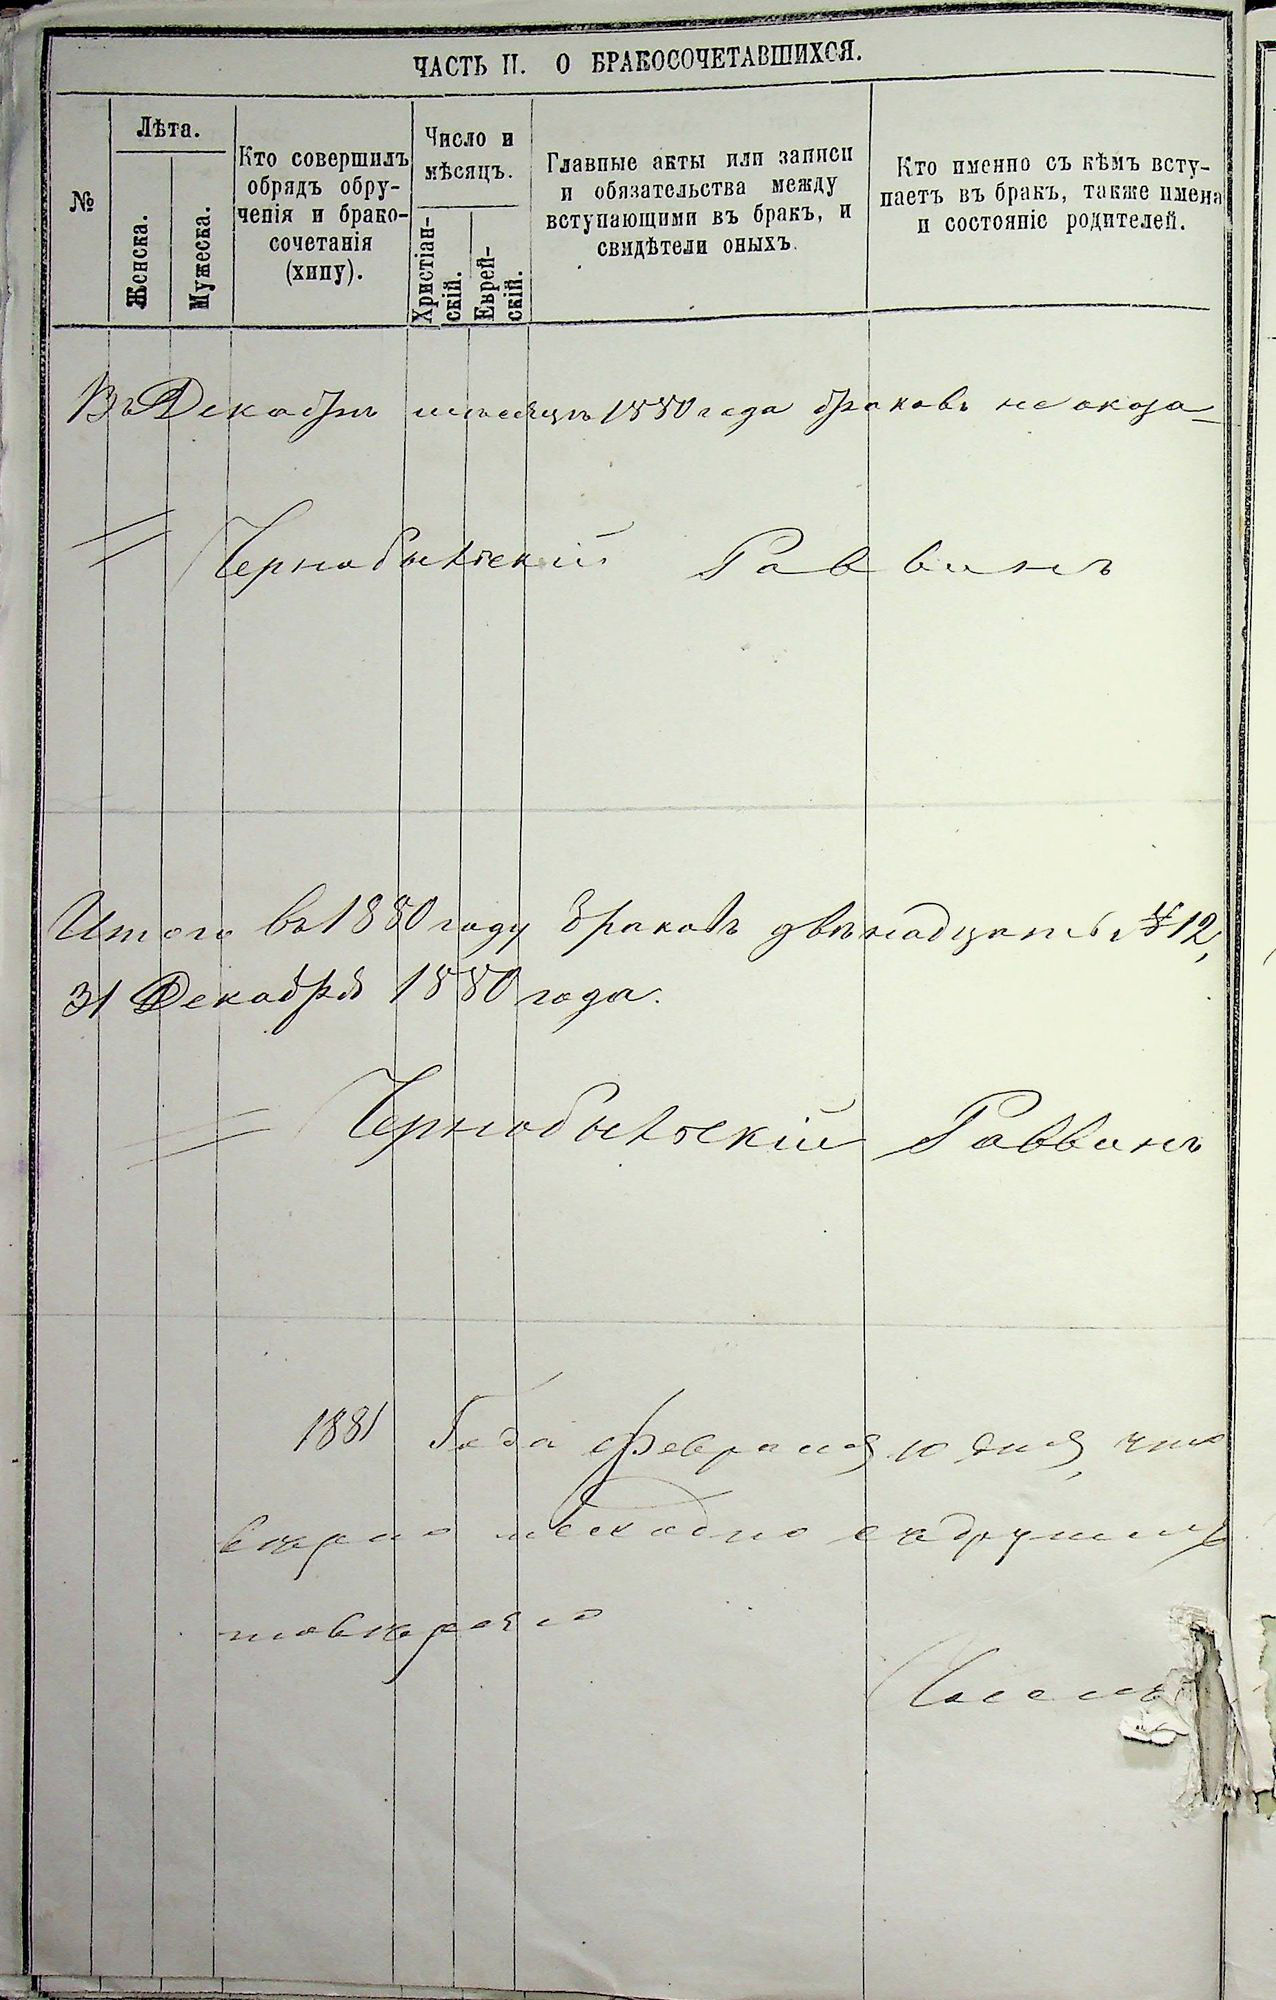 ЧАСТЬ II. О БРАКОСОЧЕТАВШИХСЯ.
№
Лѣта.
Женска.
Мужеска.
Кто совершилъ
обрядъ обру-
ченія и брако-
сочетанія
(хипу).
Число и
мѣсяцъ.
Христіан-
скій.
Еврей-
скій.
Главные акты или записи
и обязательства между
вступающими въ бракъ, и
свидѣтели оныхъ.
Кто именно съ кѣмъ всту-
паетъ въ бракъ, также имена
и состояніе родителей.
Въ Декабрѣ мѣсяцѣ 1880 года браковъ не оказа-
Чернобыльскій Раввинъ
Итого въ 1880 году браковъ двѣнадцать № 12,
31 Декабря 1880 года.
Чернобыльскій Раввинъ
1881 Года февраля 10 дня, что
вѣрно
Члень